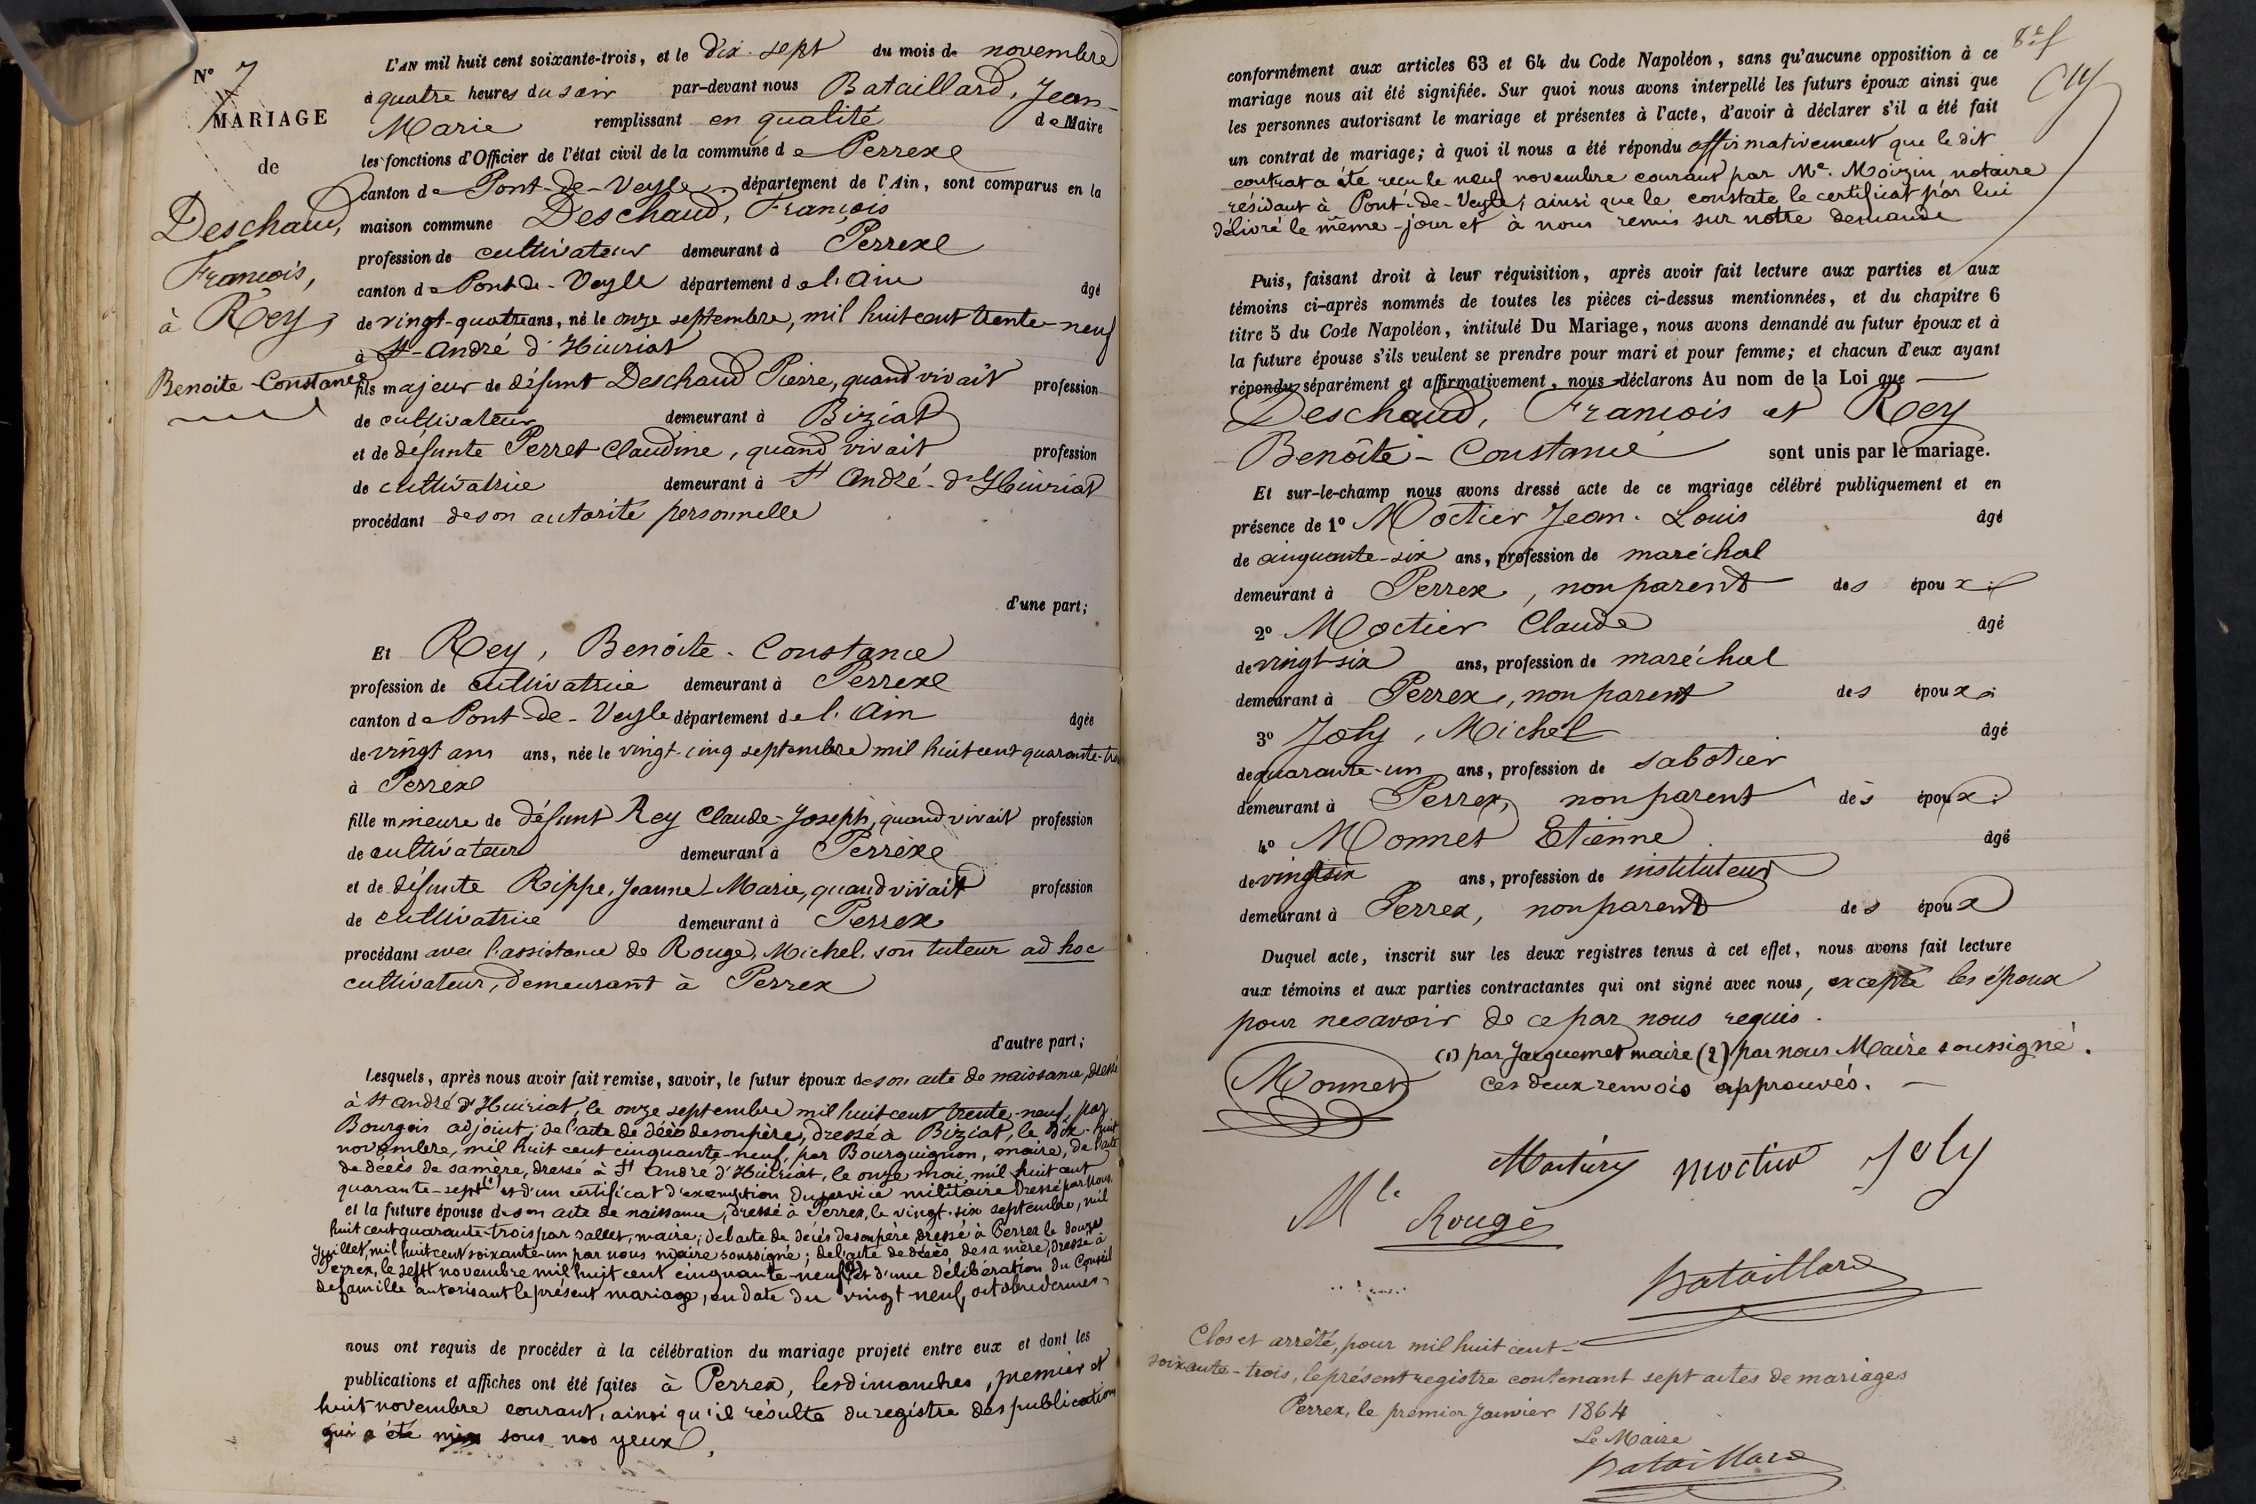 N° 7
MARIAGE
de
Deschaud,
François,
à Rey,
Benoite-Constance
L'AN mil huit cent soixante-trois, et le dix-sept du mois de novembre
à quatre heures du soir par-devant nous Bataillard, Jean-
Marie remplissant en qualité de Maire
les fonctions d'Officier de l'état civil de la commune de Perrexe
canton de Pont-de-Veyle, département de l'Ain, sont comparus en la
maison commune Deschaud, François
profession de cultivateur demeurant à Perrexe
canton de Pont-de-Veyle département de l'Ain âgé
de vingt-quatre ans, né le onze septembre, mil huit cent trente-neuf
à St-André d'Huiriat
fils majeur de défunt Deschaud Pierre, quand vivait profession
de cultivateur demeurant à Biziat
et de défunte Perret Claudine, quand vivait profession
de cultivatrice demeurant à St André-d'Huiriat
procédant de son autorité personnelle
d'une part;
Et Rey, Benoite-Constance
profession de cultivatrice demeurant à Perrexe
canton de Pont-de-Veyle département de l'Ain âgée
de vingt ans ans, née le vingt-cinq septembre mil huit cent quarante-trois
à Perrexe
fille mineure de défunt Rey Claude-Joseph, quand vivait profession
de cultivateur demeurant à Perrexe
et de défunte Rippe, Jeanne-Marie, quand vivait profession
de cultivatrice demeurant à Perrex
procédant avec l'assistance de Rouge, Michel, son tuteur ad hoc
cultivateur, demeurant à Perrex
d'autre part;
Lesquels, après nous avoir fait remise, savoir, le futur époux de son acte de naissance, dressé
à St André d'Huiriat, le onze septembre mil huit cent trente-neuf, par
Bourgeois adjoint; de l'acte de décès de son père, dressé à Biziat, le dix-huit
novembre, mil huit cent cinquante-neuf, par Bourguignon, maire, de l'acte
de décès de sa mère, dressé à St André d'Huiriat, le onze mai, mil huit cent
quarante-sept (1) et d'un certificat d'exemption du service militaire dressé par nous,
et la future épouse de son acte de naissance, dressé à Perrex, le vingt-six septembre, mil
huit cent quarante-trois par Sallet, maire; de l'acte de décès de son père dressé à Perrex le douze
Juillet, mil huit cent soixante-un par nous maire soussigné; de l'acte de décès, de sa mère, dressé à
Perrex, le sept novembre mil huit cent cinquante-neuf (2) et d'une délibération du Conseil
de famille autorisant le présent mariage, en date du vingt-neuf, octobre dernier
nous ont requis de procéder à la célébration du mariage projeté entre eux et dont les
publications et affiches ont été faites à Perrex, les dimanches, premier et
huit novembre courant, ainsi qu'il résulte du registre des publications
qui a été mis sous nos yeux,
conformément aux articles 63 et 64 du Code Napoléon, sans qu'aucune opposition à ce
mariage nous ait été signifiée. Sur quoi nous avons interpellé les futurs époux ainsi que
les personnes autorisant le mariage et présentes à l'acte, d'avoir à déclarer s'il a été fait
un contrat de mariage; à quoi il nous a été répondu affirmativement que le dit
contrat a été reçu le neuf novembre courant par Me. Moizin notaire
résidant à Pont-de-Veyle; ainsi que le constate le certificat par lui
délivré le même jour et à nous remis sur notre demande
Puis, faisant droit à leur réquisition, après avoir fait lecture aux parties et aux
témoins ci-après nommés de toutes les pièces ci-dessus mentionnées, et du chapitre 6
titre 5 du Code Napoléon, intitulé Du Mariage, nous avons demandé au futur époux et à
la future épouse s'ils veulent se prendre pour mari et pour femme; et chacun d'eux ayant
répondu séparément et affirmativement, nous déclarons Au nom de la Loi que
Deschaud, François et Rey
Benoîte-Constance sont unis par le mariage.
Et sur-le-champ nous avons dressé acte de ce mariage célébré publiquement et en
présence de 1° Moctier Jean-Louis âgé
de cinquante-six ans, profession de maréchal
demeurant à Perrex, non parent des époux;
2° Moctier Claude âgé
de vingt-six ans, profession de maréchal
demeurant à Perrex, non parent des époux;
3° Joly, Michel âgé
de quarante-un ans, profession de sabotier
demeurant à Perrex, non parent des époux;
4° Monnet Etienne âgé
de vingt-six ans, profession de instituteur
demeurant à Perrex, non parent des époux
Duquel acte, inscrit sur les deux registres tenus à cet effet, nous avons fait lecture
aux témoins et aux parties contractantes qui ont signé avec nous, excepté les époux
pour ne savoir de ce par nous requis.
(1) par Jacquemet maire (2) par nous Maire soussigné.
Ces deux renvois approuvés.
Monnet
moctier Joly
Rouge
Bataillard
Clos et arrêté, pour mil huit cent-
soixante-trois, le présent registre contenant sept actes de mariages
Perrex, le premier Janvier 1864
Le Maire
Bataillard